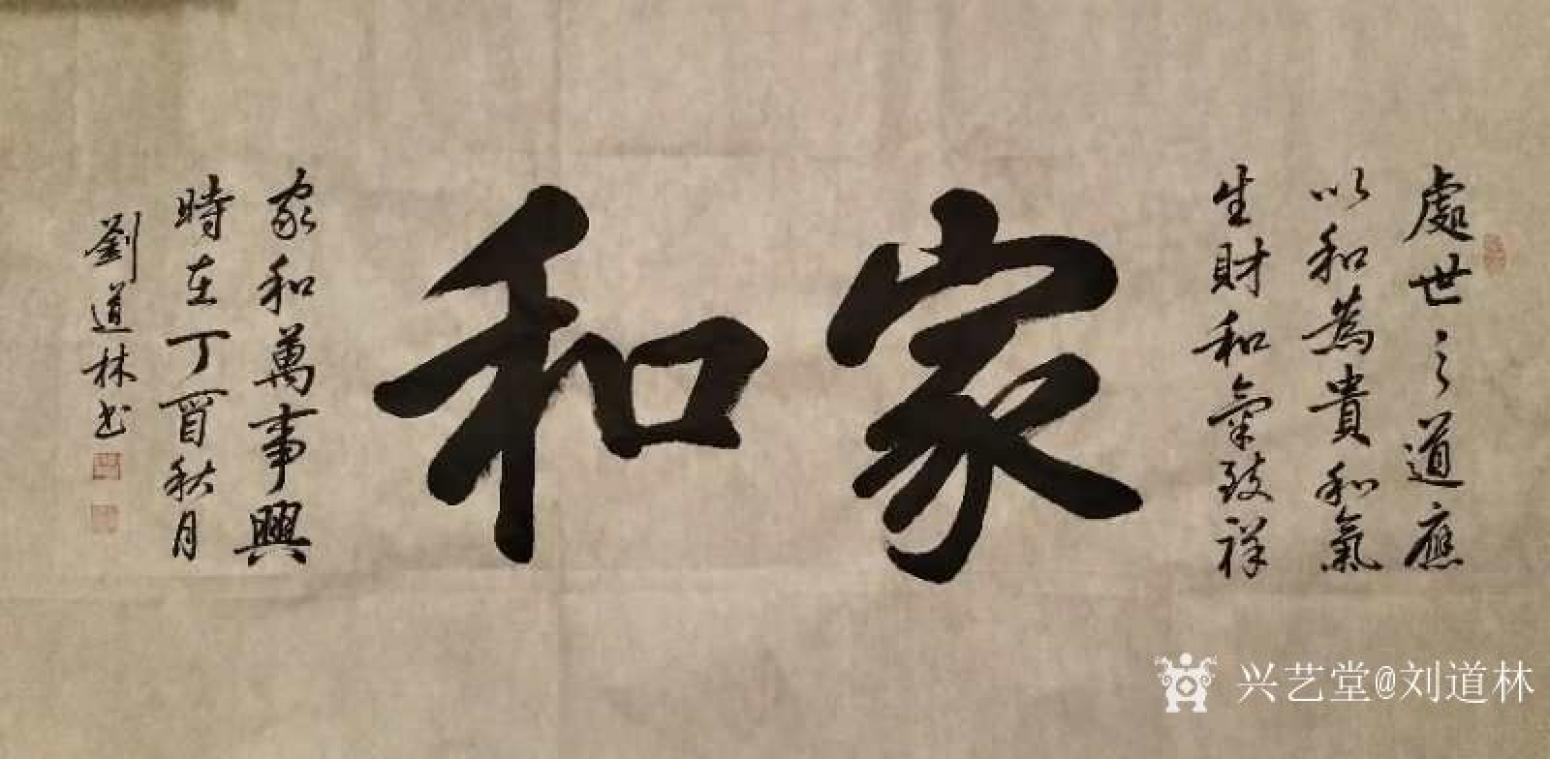 處世之道應
以和為貴和氣
生財和氣致祥
家和
家和萬事興
時在丁酉秋月
劉道林书
兴艺堂@刘道林